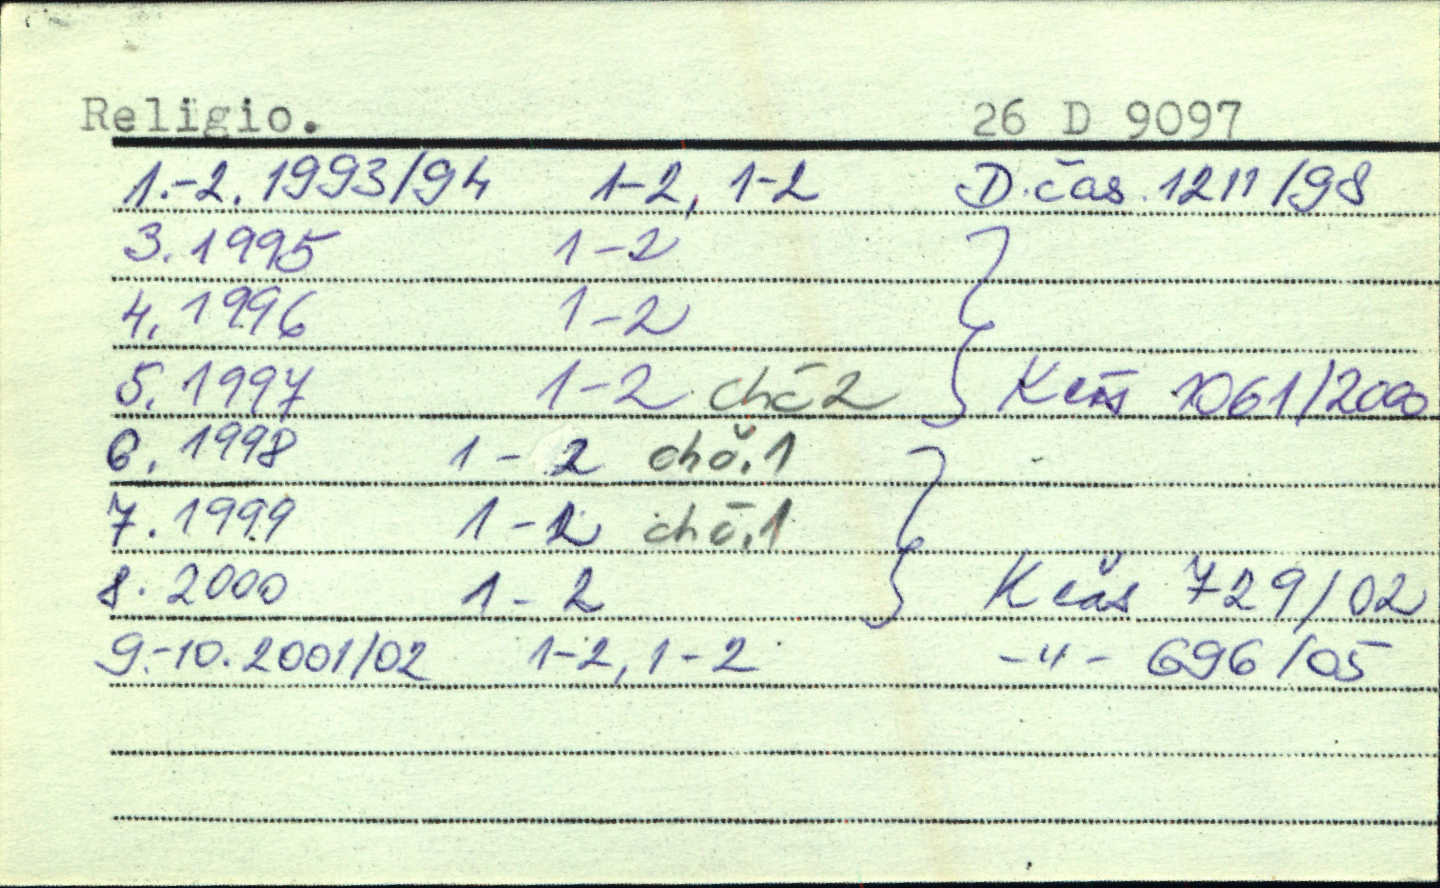 Religio. 26 D 9097
1.-2. 1993/94 1-2, 1-2 D.čas. 1211/98
3. 1995 1-2
4. 1996 1-2
5. 1997 1-2 chč2 K čas 1061/2000
6. 1998 1-2 chč.1
7. 1999 1-2 chč.1
8. 2000 1-2 K čas 729/02
9.-10. 2001/02 1-2, 1-2 -"- 696/05